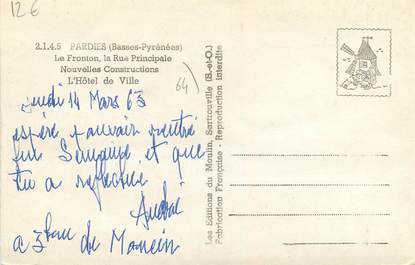 12€
2.1.4.5 PARDIES (Basses-Pyrénées)
Le Fronton, la Rue Principale
Nouvelles Constructions
L'Hôtel de Ville
64)
Jeudi 14 Mars 63
espère pouvoir rentré
fin Semaine et que
tu a
a 3 de
Les Editions du Moulin, Sartrouville (S.-et-O.)
Fabrication Française - Reproduction interdite